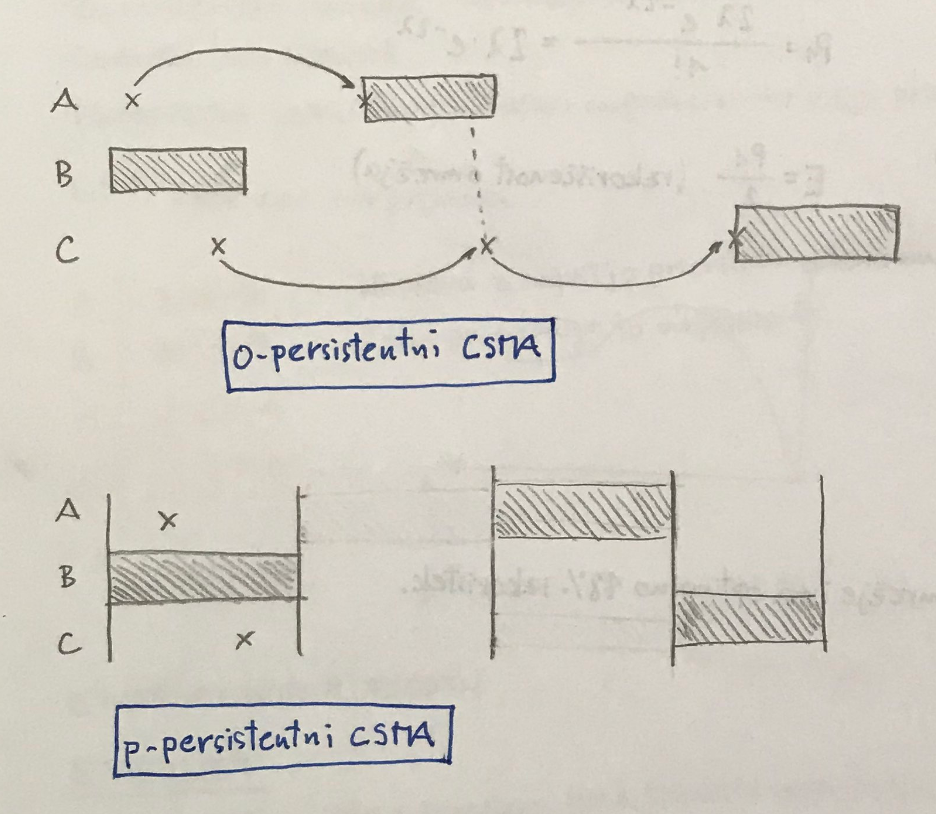 A x x
B
C x x x
0-persistentni CSMA
A x
B
C x
p-persistentni CSMA